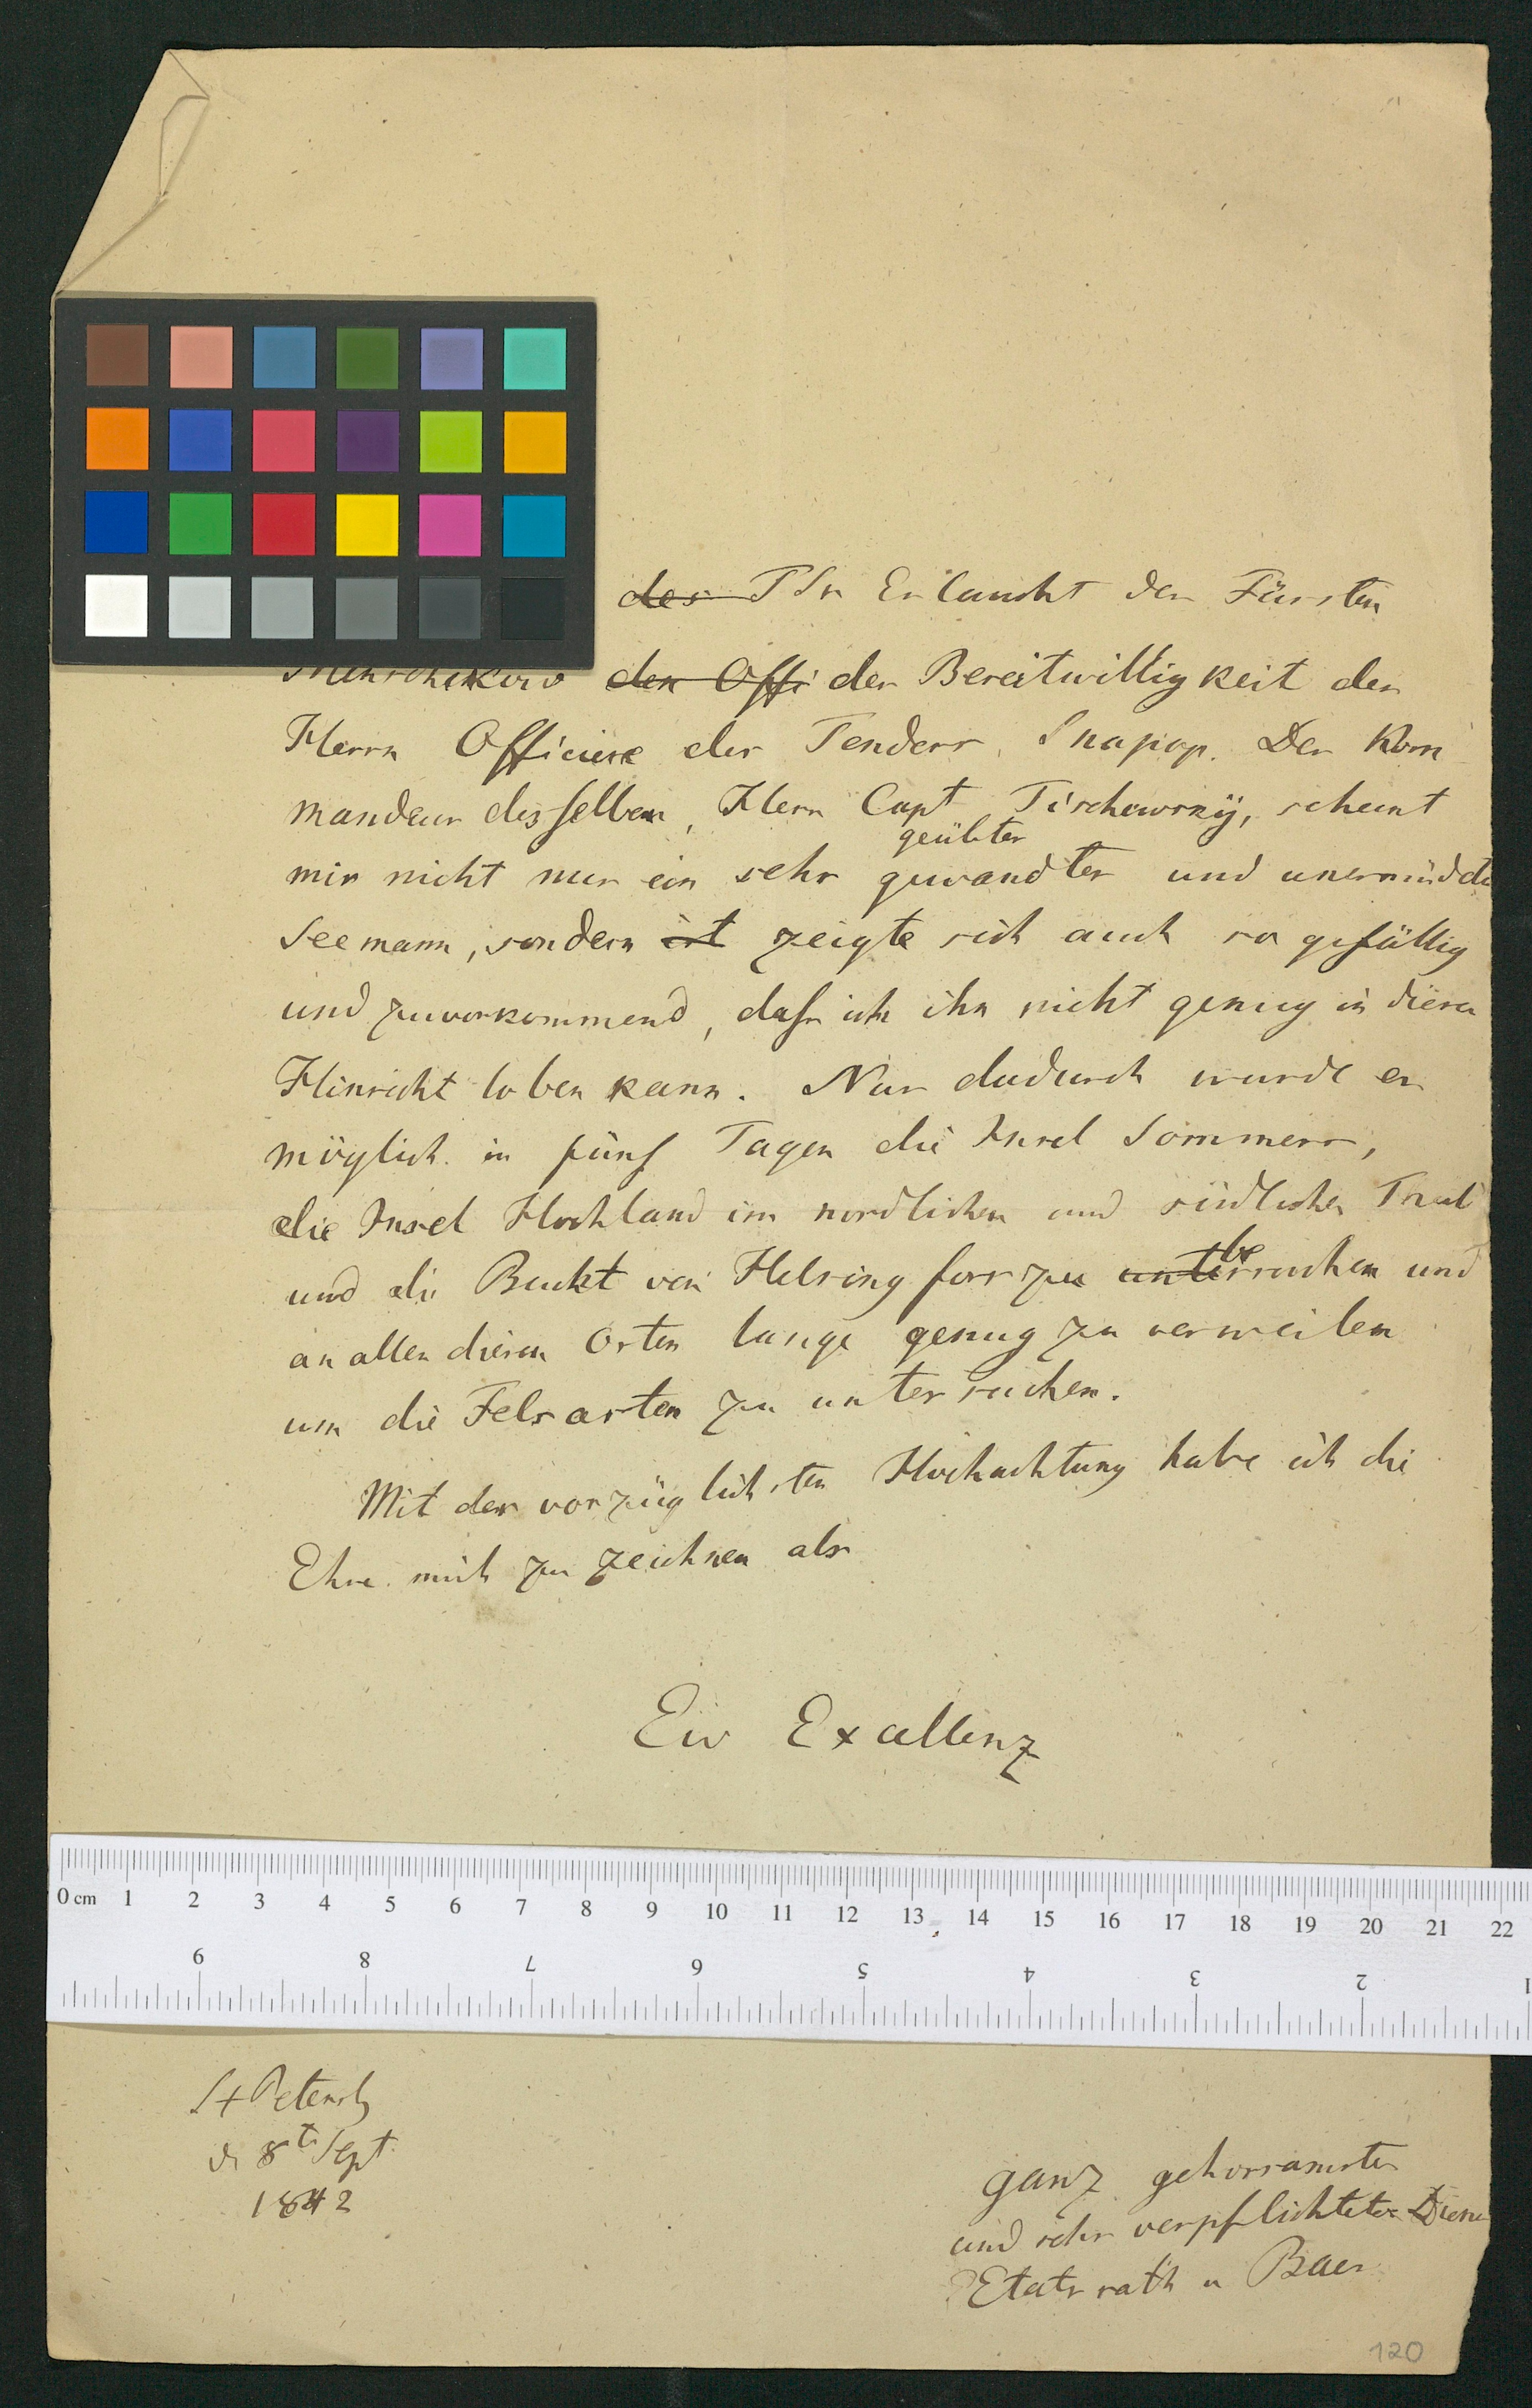 des Sr Erlaucht des Fürsten
Menschikow den Offi der Bereitwilligkeit der
Herrn Officiere des Tenders Snapop. Der Kom
mandeur desselben, Herr Capt Tischewskÿ, scheint
geübter
mir nicht nur ein sehr gewandter und unermüdete
Seemann, sondern ist zeigte sich auch so gefällig
und zuvorkommend, dass ich ihn nicht genug in dieser
Hinsicht loben kann. Nur dadurch wurde es
möglich in fünf Tagen die Insel Sommers,
die Insel Hochland im nordlichen und südlichen Theil
be
und die Bucht von Helsingfors zu untersuchen und
an allen diesen Orten lange genug zu verweilen
um die Felsarten zu untersuchen.
Mit der vorzüglichsten Hochachtung habe ich die
Ehre mich zu zeichnen als
Ew Excellenz
0 cm 1 2 3 4 5 6 7 8 9 10 11 12 13 14 15 16 17 18 19 20 21 22
9 8 7 6 5 4 3 2 1
St Petersb
d 8t Sept
1842
ganz gehorsamster
und sehr verpflichteter Diene
Etatsrath v Baer
120